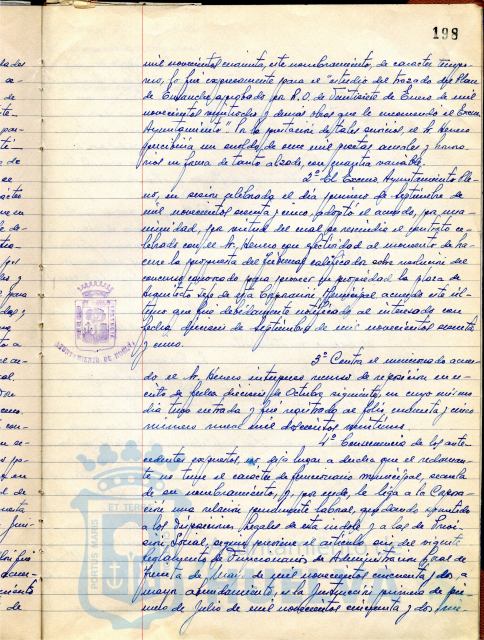 198
mil novecientos cuarenta, este nombramiento, de caracter tempo-
rero, lo fué expresamente para el "estudio del trazado del Plan
de Ensanche aprobado por R.O. de Veintisiete de Enero de mil
novecientos veintiocho y demás obras que le encomiende el Excmo
Ayuntamiento". Por la prestación de tales servicios, el Sr. Herrero
percibiría un sueldo de once mil pesetas anuales y honora-
rios en forma de tanto alzado, con cuantía variable.
2º El Excmo. Ayuntamiento Ple-
no, en sesión celebrada el día primero de Septiembre de
mil novecientos sesenta y cinco, adoptó el acuerdo, por una-
nimidad, por virtud del cual se rescindía el contrato ce-
lebrado con el Sr. Herrero con efectividad al momento de ha-
cerse la propuesta del Tribunal calificador sobre resolución del
concurso convocado para proveer en propiedad la plaza de
Arquitecto Jefe de esta Corporación Municipal, acuerdo este úl-
timo que fué debidamente notificado al interesado con
fecha de Septiembre de mil novecientos sesenta
y cinco.
3º Contra el mencionado acuer-
do el Sr. Herrero interpuso recurso de reposición en es-
crito de fecha dieciseis de Octubre siguiente, en cuyo mismo
día tuvo entrada y fue registrado al folio
número nueve mil doscientos veintiuno.
4º Consecuencia de los ante-
cedentes expuestos, no deja lugar a dudas que el reclaman-
te no tiene el carácter de funcionario municipal,
de su nombramiento, y, por ende, le liga a la Corpora-
ción una relación puramente laboral, quedando
a las disposiciones legales de esta índole y a las de Previ-
sión Social, según previene el artículo seis del vigente
Reglamento de Funcionarios de Administración Local de
treinta de Mayo de mil novecientos cincuenta y dos, a
mayor abundamiento, en la Instrucción primera de pri-
mero de Julio de mil novecientos cincuenta y dos
AYUNTAMIENTO DE
ET TER
PORTUS MARIS